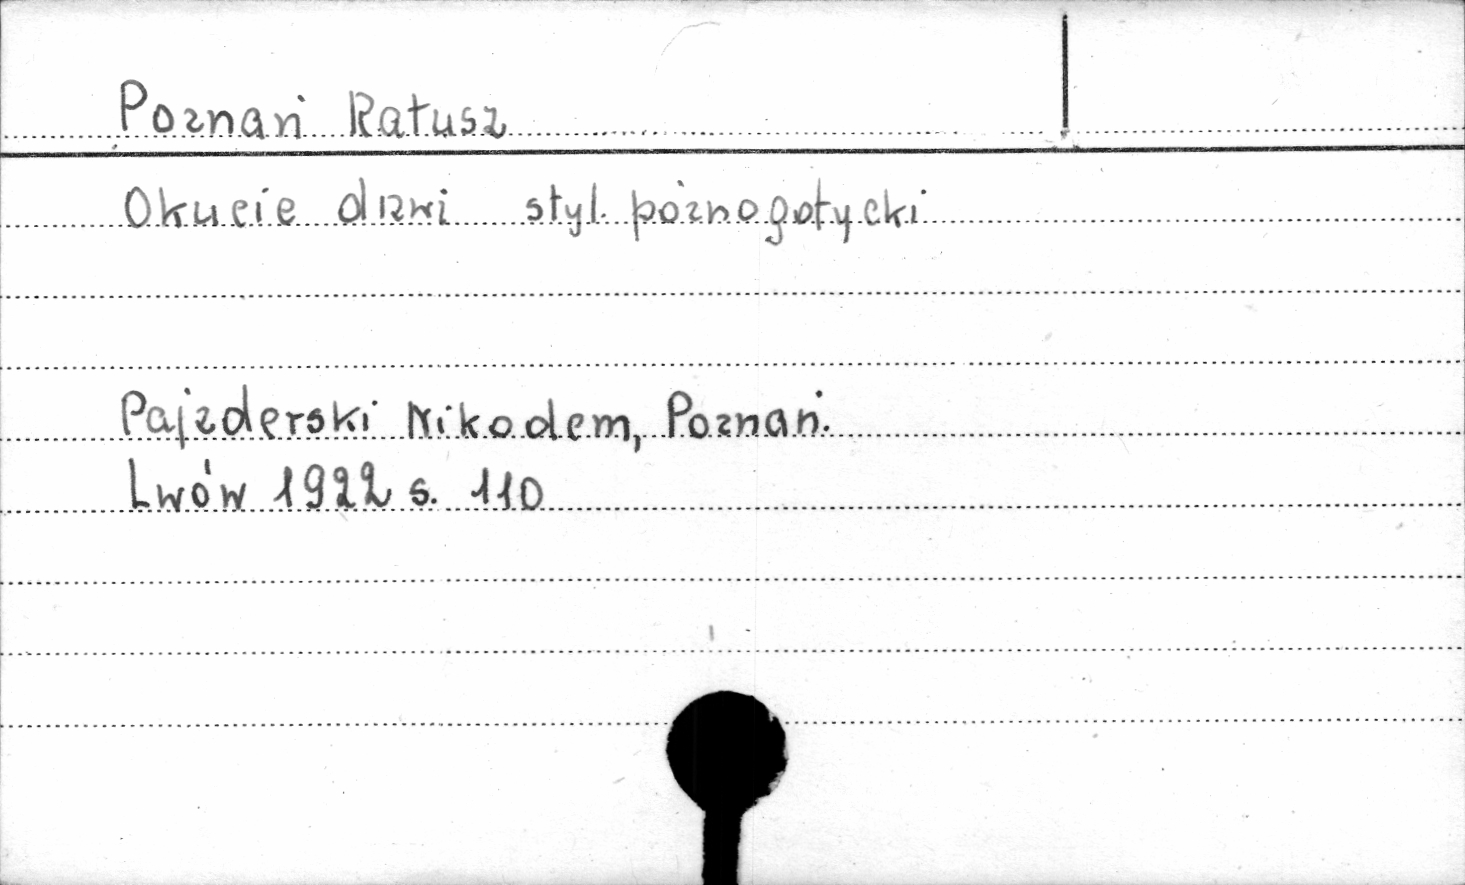 Poznań Ratusz
Okucie drzwi styl. póżnogotycki
Pajzderski Nikodem, Poznań.
Lwów 1922 s. 110